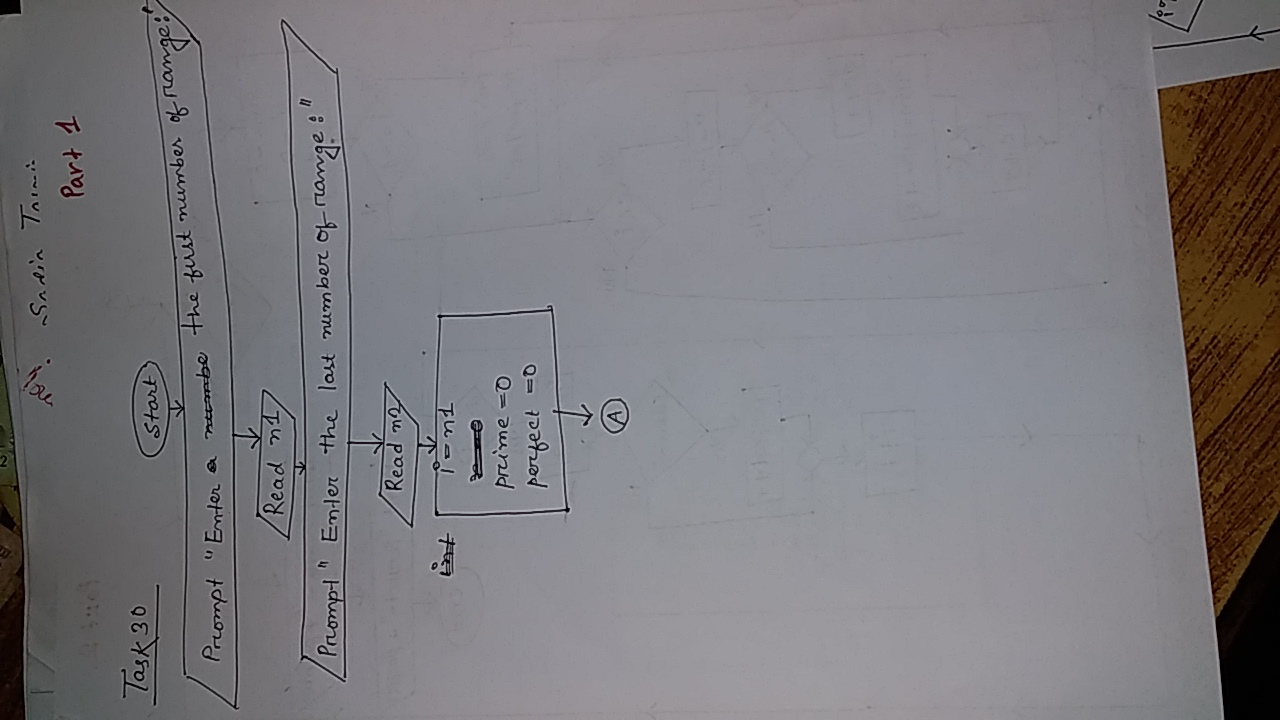 Part 1
Task 30
Start
Prompt "Enter a numbe the first number of range:"
Read n1
Prompt "Enter the last number of range:"
Read n2
int
i = n1
prime = 0
perfect = 0
A